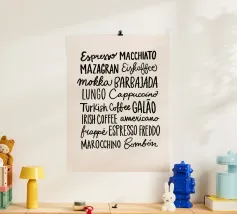 Espresso MACCHIATO
MAZAGRAN Eiskaffee
mokka BARBAJADA
LUNGO Cappuccino
Turkish Coffee GALÃO
IRISH COFFEE americano
frappé ESPRESSO FREDDO
MAROCCHINO Bombón